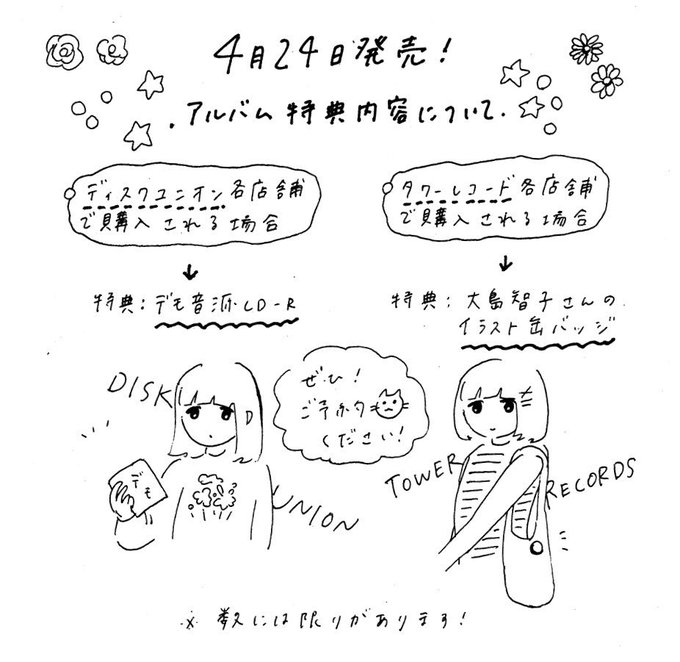 4月24日発売!
.アルバム特典内容について.
ディスクユニオン各店舗
で購入される場合
↓
特典:デモ音源CD-R
タワーレコード各店舗
で購入される場合
↓
特典:大島智子さんの
イラスト缶バッジ
DISK
UNION
デモ
ぜひ!
ご予約
ください!
TOWER
RECORDS
※ 数には限りがあります!